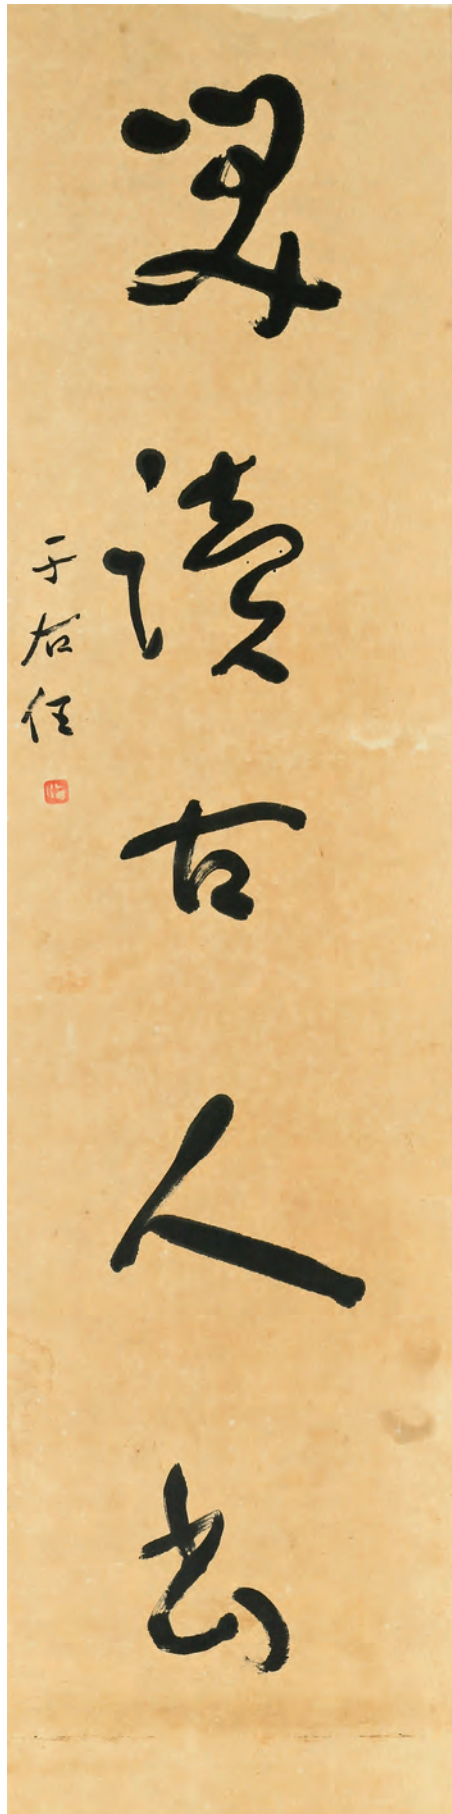 讀古人書
于右任